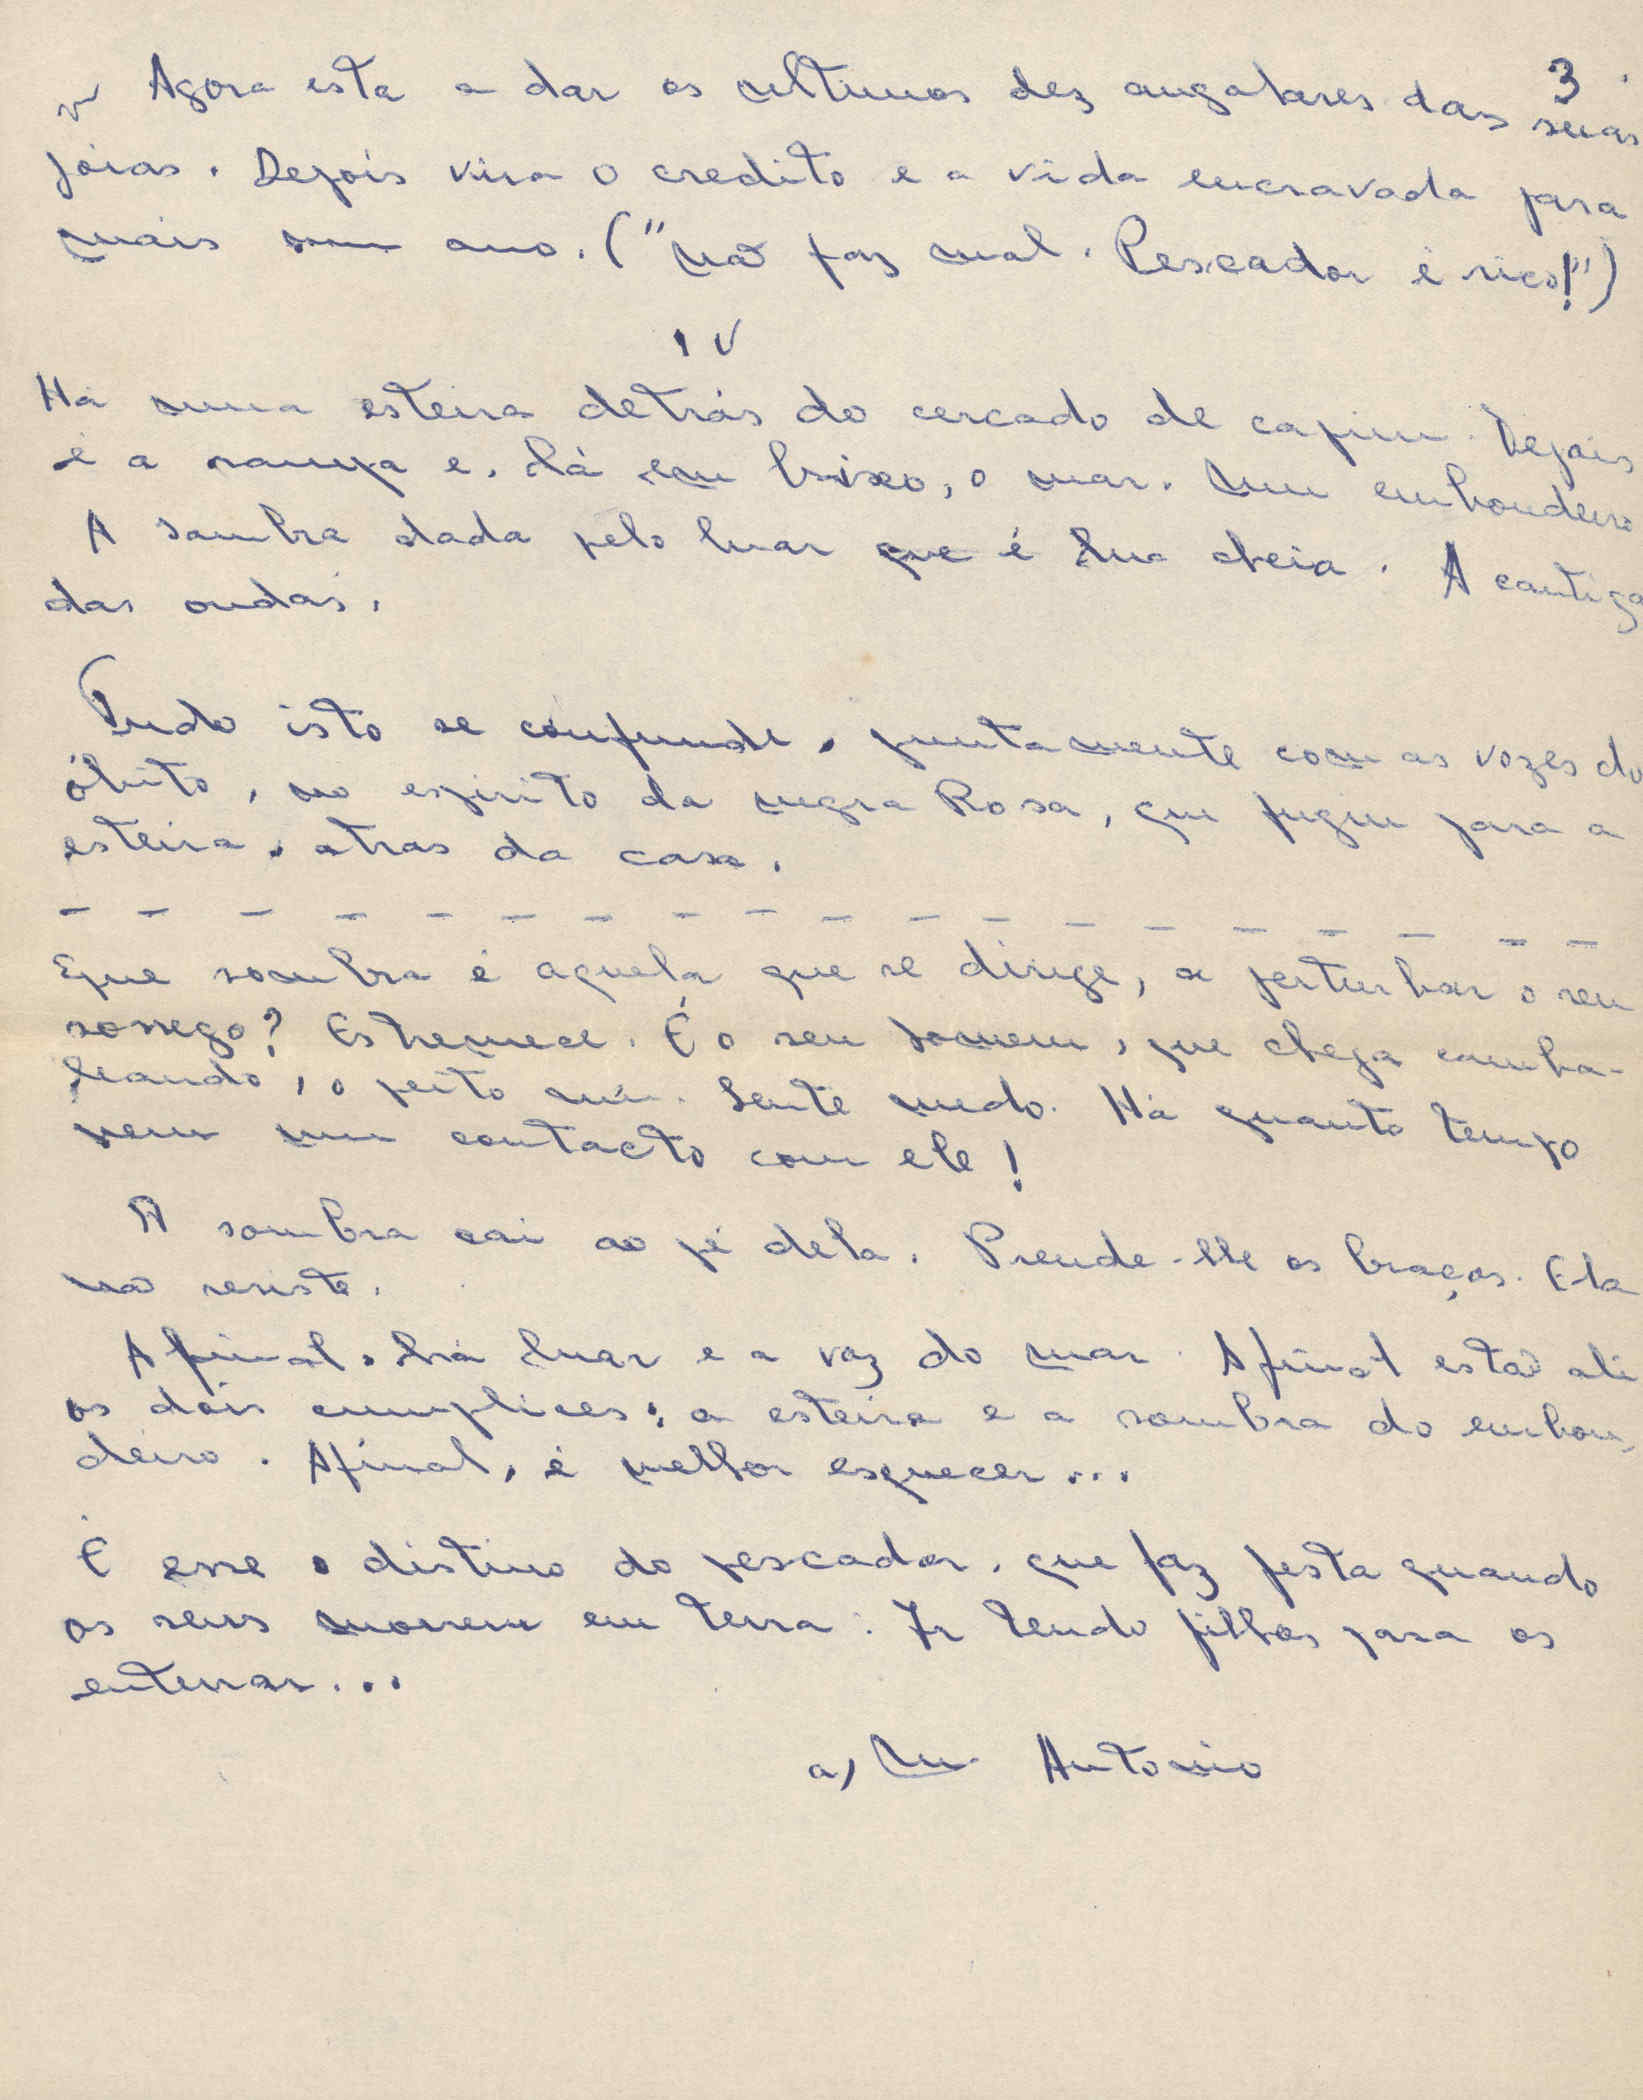 3
Agora esta a dar os ultimos dez angolares das suas
jóias. Depois vira o credito e a vida encravada para
mais um ano. ("Não faz mal. Pescador é rico!")
IV
Há uma esteira detrás do cercado de capim. Depois
é a rampa e, lá em baixo, o mar. Um embondeiro
A sombra dada pelo luar que é lua cheia. A cantiga
das ondas.
Tudo isto se confunde, juntamente com as vozes do
óbito, no espirito da negra Rosa, que fugiu para a
esteira, atras da casa.
- - - - - - - - - - - - - - - - - - -
Que sombra é aquela que se dirige, a perturbar o seu
sossego? Estremece. É o seu homem, que chega camba-
leando, o peito nú. Sente medo. Há quanto tempo
nem um contacto com ele!
A sombra cai ao pé dela. Prende-lhe os braços. Ela
não resiste.
Afinal, há luar e a voz do mar. Afinal estão ali
os dois cumplices: a esteira e a sombra do embon-
deiro. Afinal, é melhor esquecer...
É esse o distino do pescador, que faz festa quando
os seus morrem em terra: Ir tendo filhos para os
enterrar...
a) Antonio